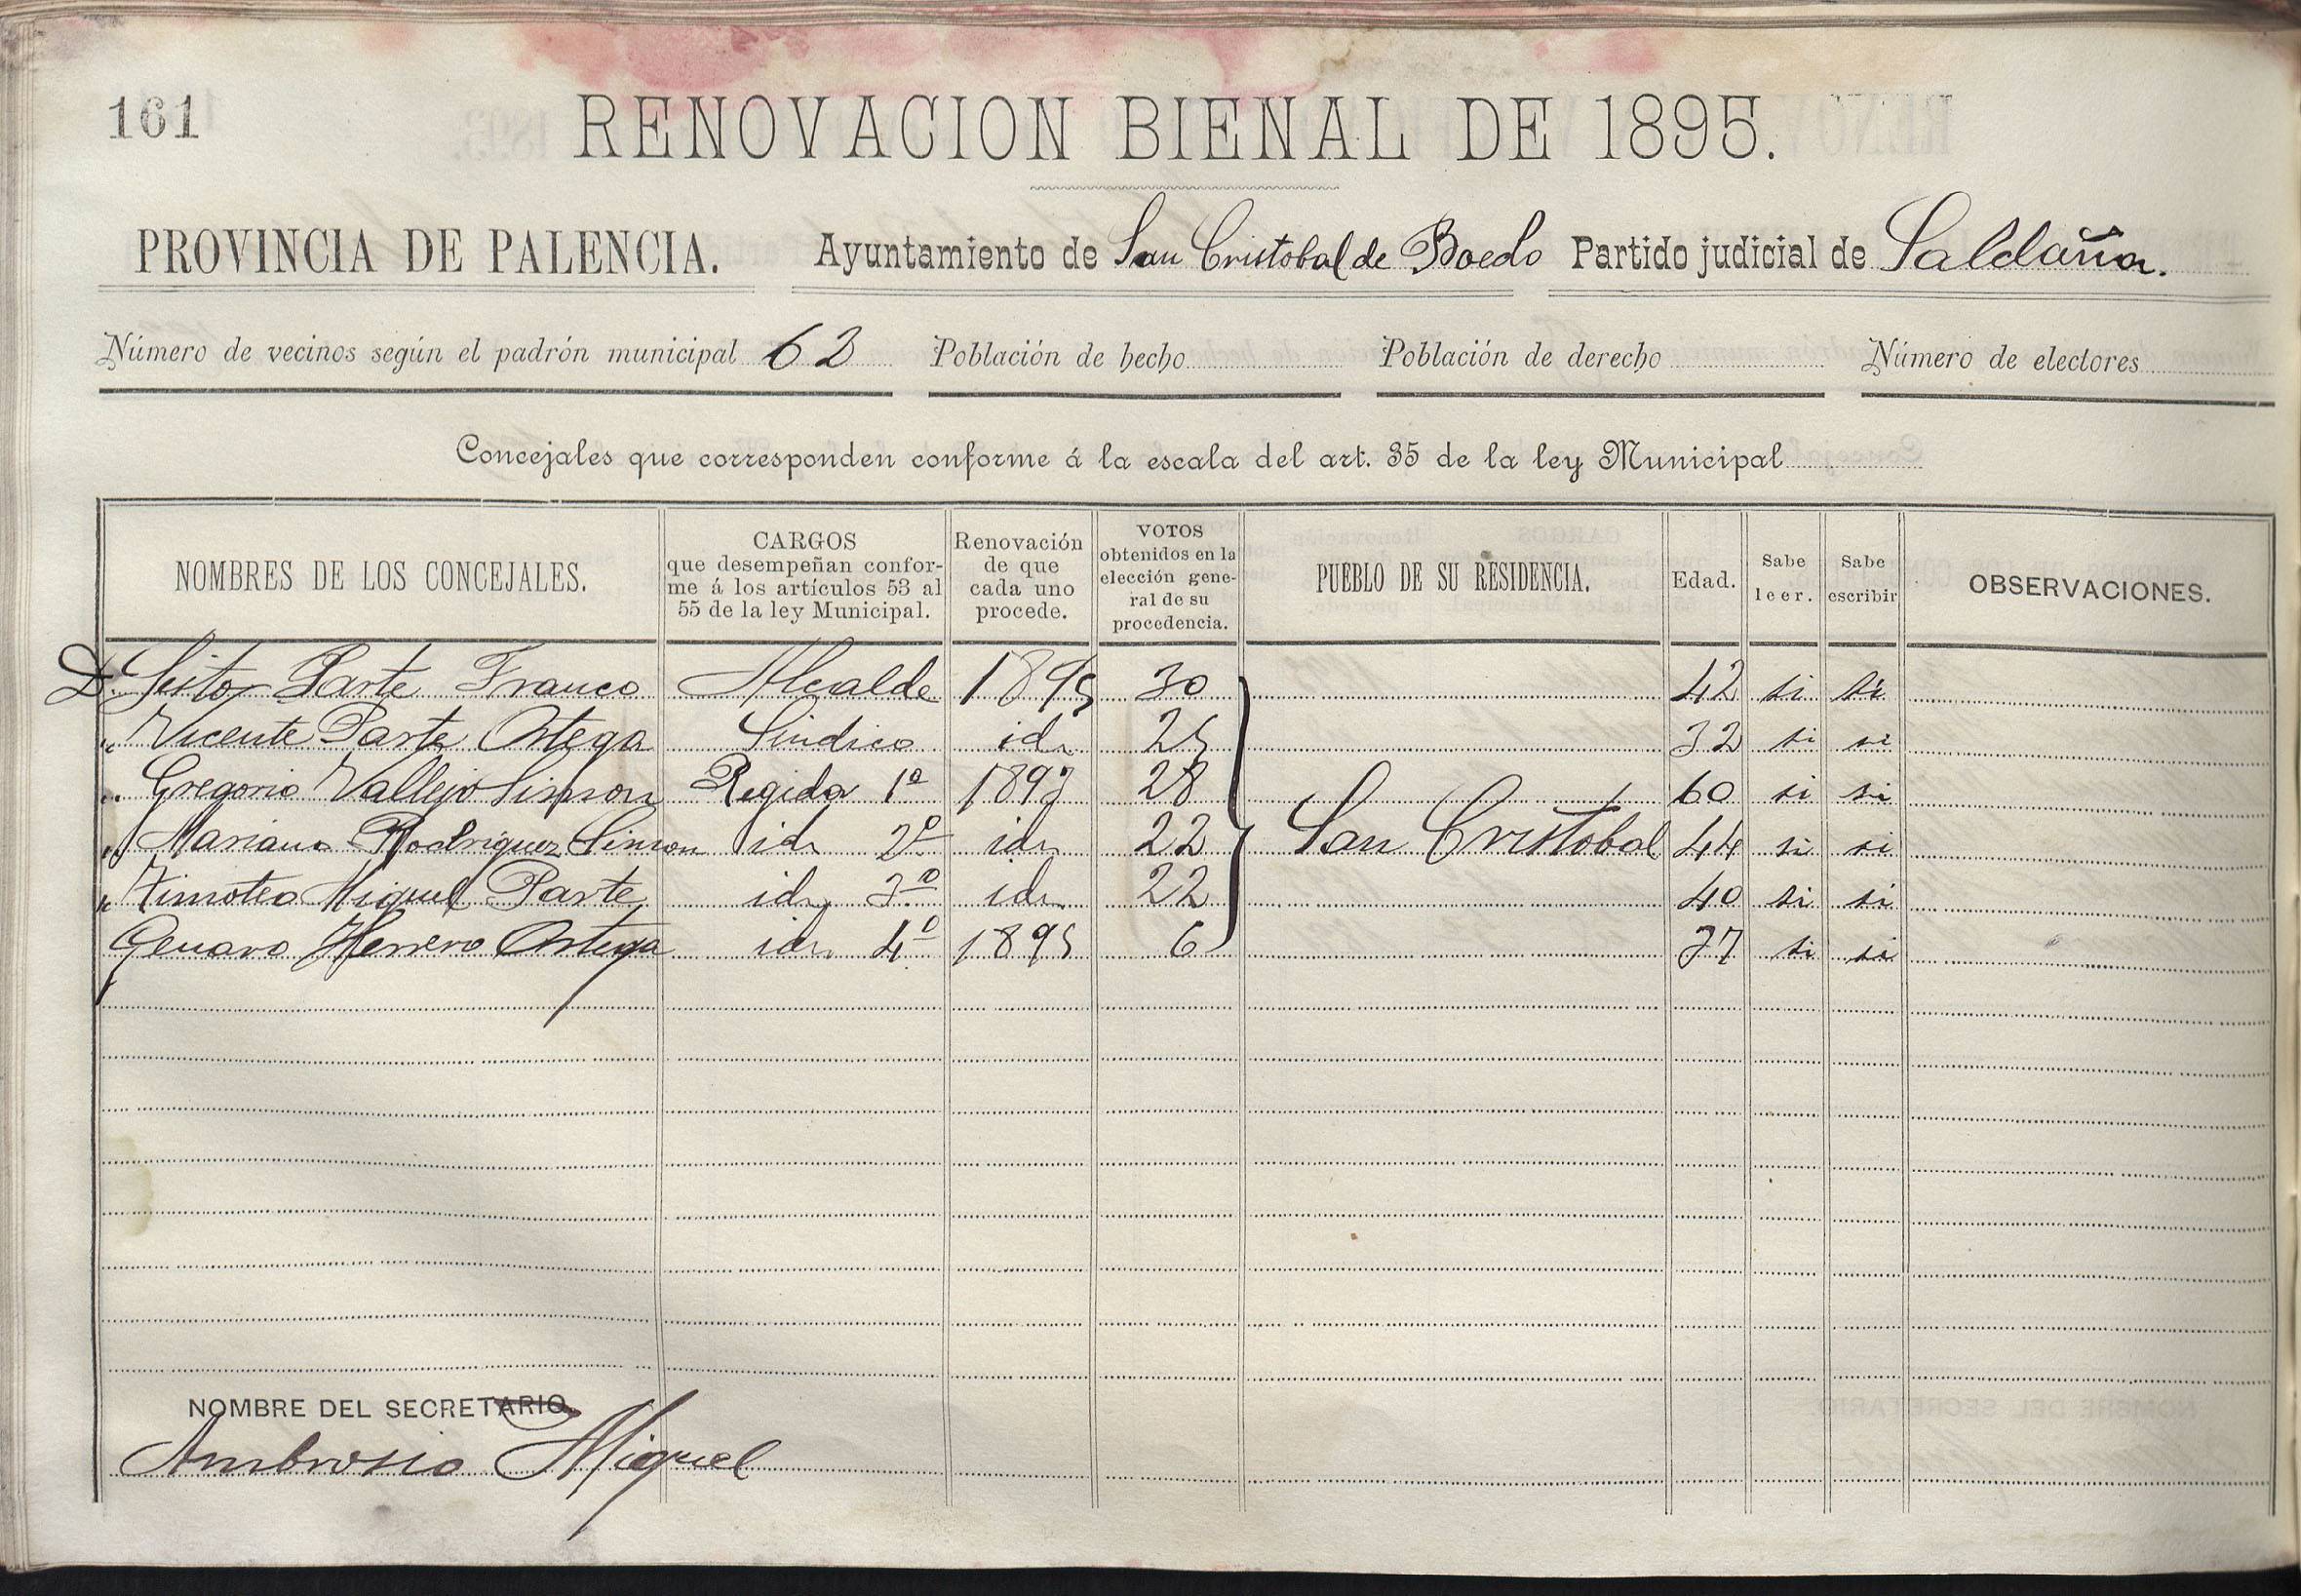 161
RENOVACION BIENAL DE 1895.
PROVINCIA DE PALENCIA. Ayuntamiento de San Cristobal de Boedo Partido judicial de Saldaña.
Número de vecinos según el padrón municipal 62 Población de hecho Población de derecho Número de electores
Concejales que corresponden conforme á la escala del art. 35 de la ley Municipal
NOMBRES DE LOS CONCEJALES.
CARGOS
que desempeñan confor-
me á los artículos 53 al
55 de la ley Municipal.
Renovación
de que
cada uno
procede.
VOTOS
obtenidos en la
elección gene-
ral de su
procedencia.
PUEBLO DE SU RESIDENCIA.
Edad.
Sabe
leer.
Sabe
escribir
OBSERVACIONES.
Dn Parte Franco Alcalde 1895 30 42 si si
" Vicente Parte Ortega Sindico id. 25 32 si si
" Gregorio Vallejo Simon Regidor 1º 1893 28 60 si si
" Mariano Rodriguez Simon id. 2º id. 22 San Cristobal 44 si si
" Timoteo Miguel Parte id. 3º id. 22 40 si si
Genaro Herrero Ortega id. 4º 1895 6 37 si si
NOMBRE DEL SECRETARIO.
Ambrosio Miguel